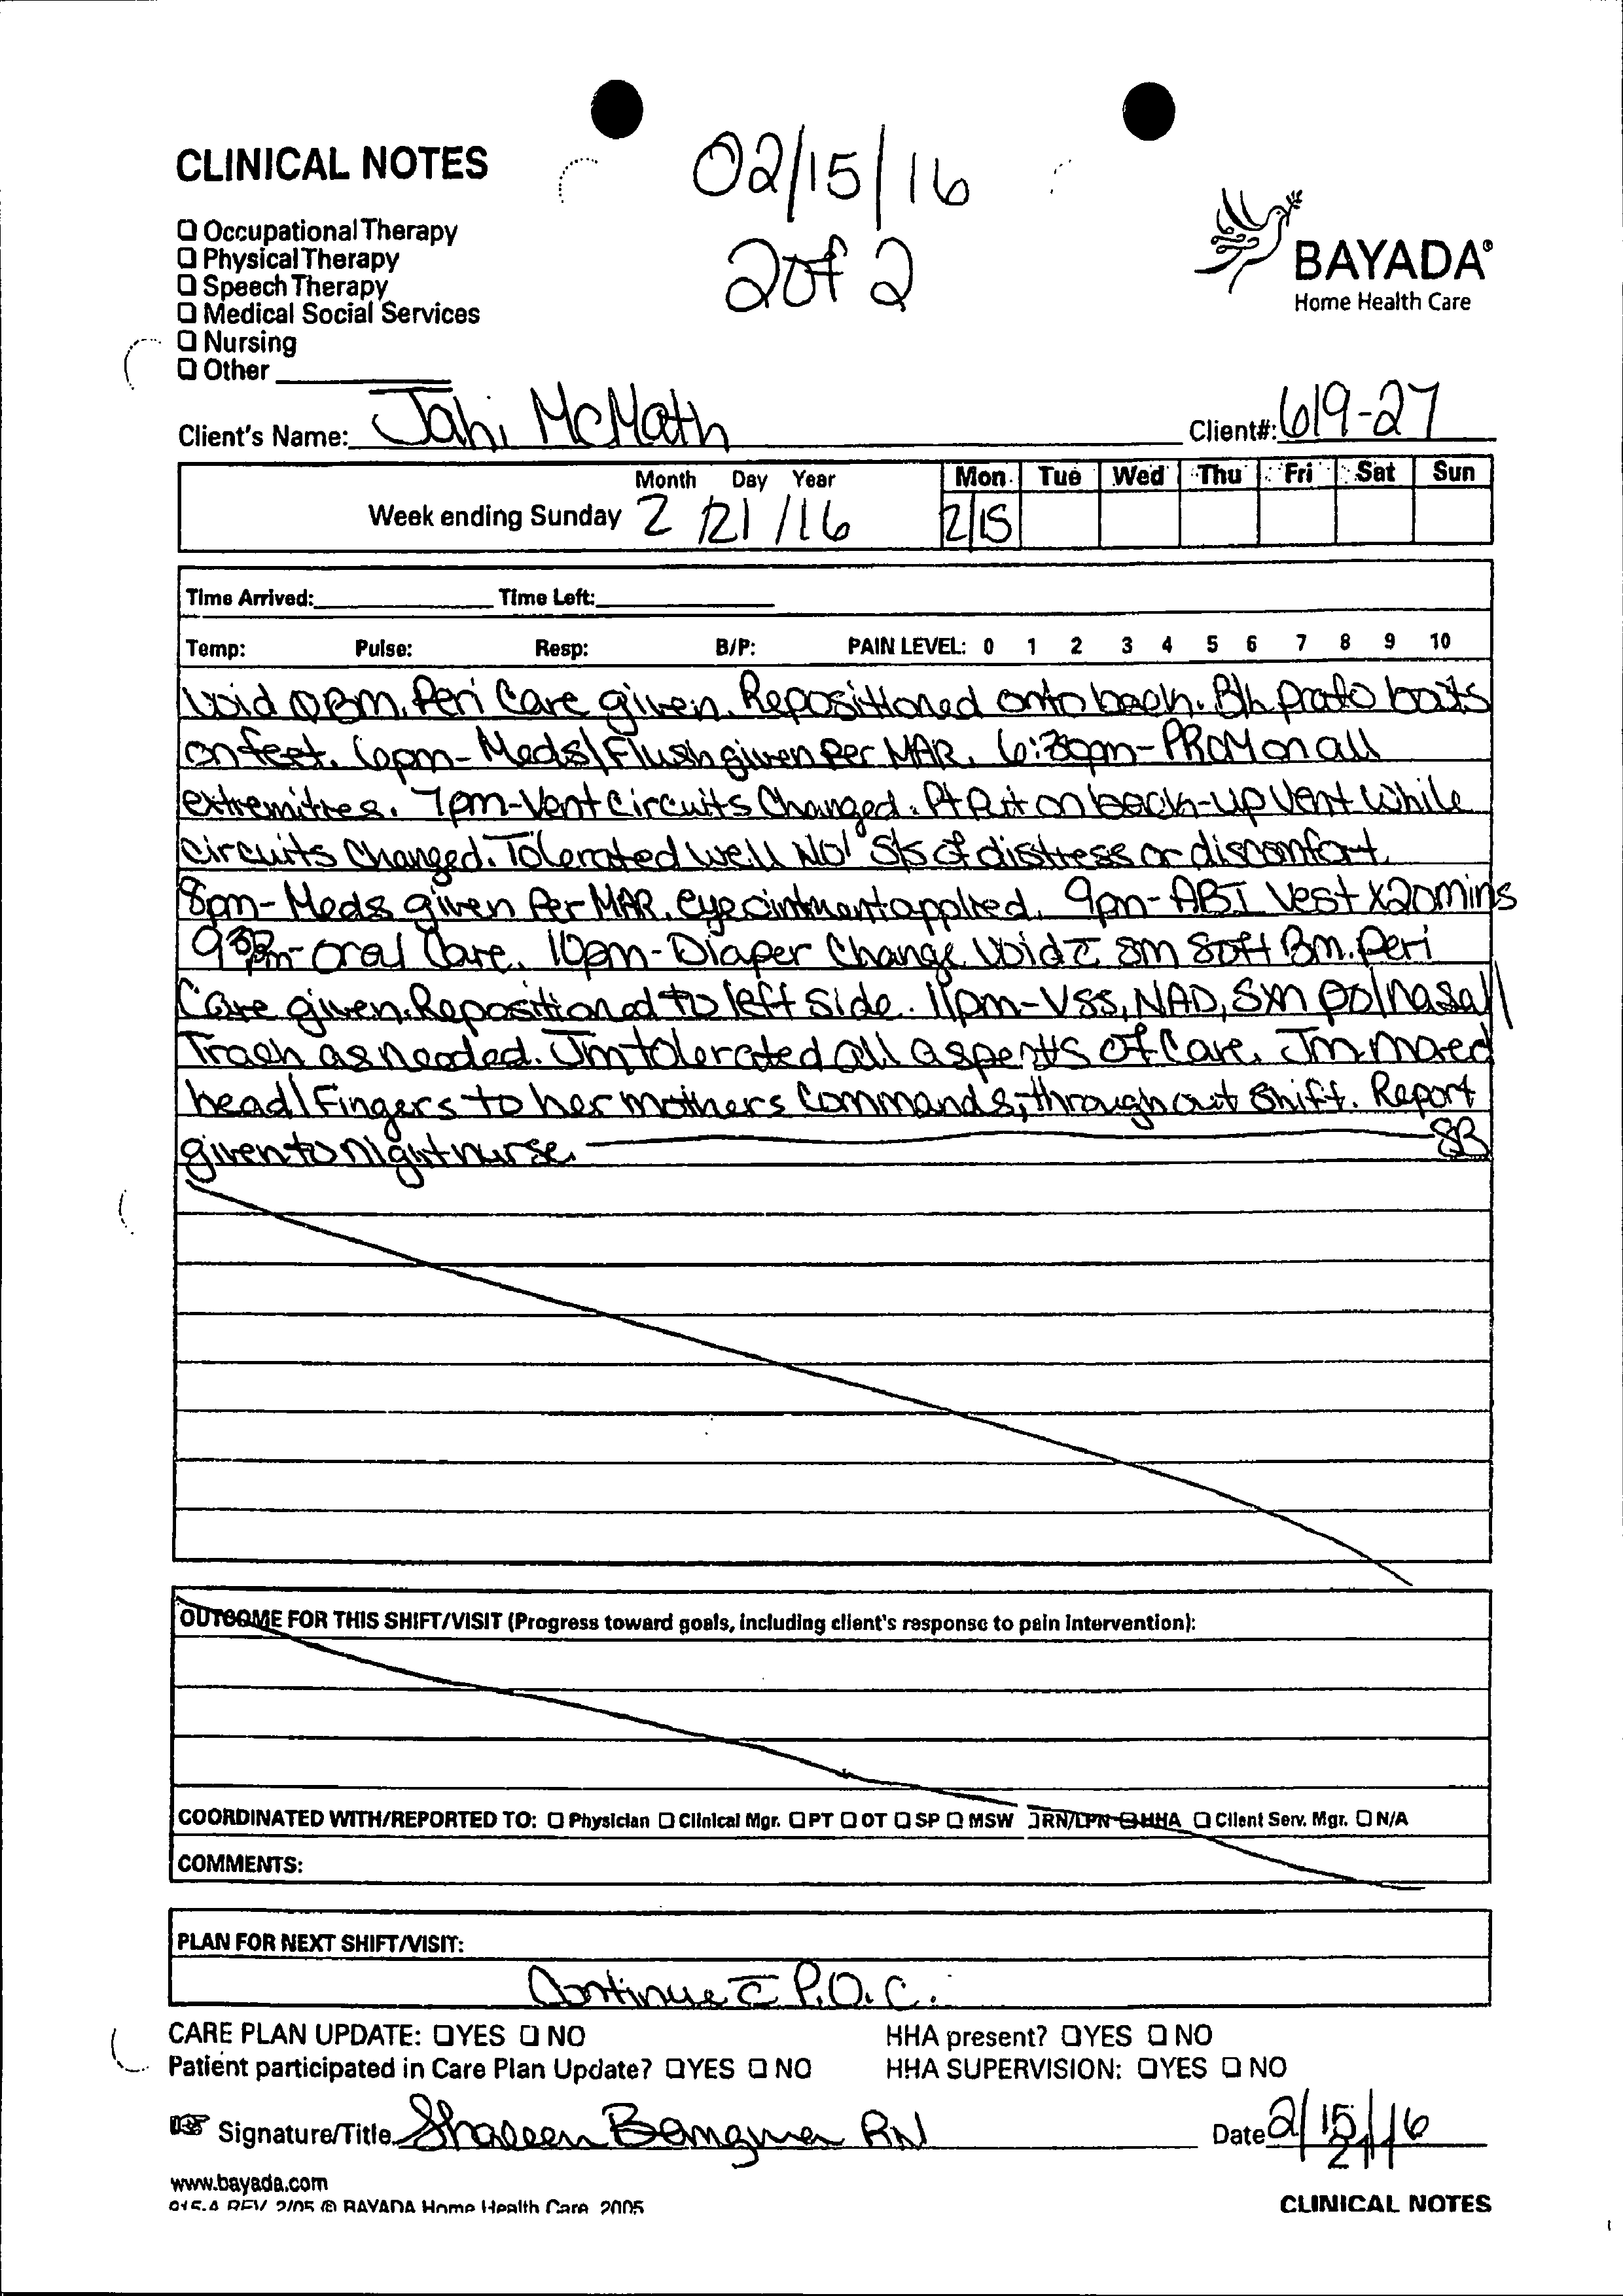 02/15/16
2 of 2
CLINICAL NOTES
❑ Occupational Therapy
❑ Physical Therapy
❑ Speech Therapy
❑ Medical Social Services
❑ Nursing
❑ Other
BAYADA®
Home Health Care
Client's Name: Jahi McMath Client#: 619-27
Month Day Year Mon Tue Wed Thu Fri Sat Sun
Week ending Sunday 2/21/16 2/15
Time Arrived: Time Left:
Temp: Pulse: Resp: B/P: PAIN LEVEL: 0 1 2 3 4 5 6 7 8 9 10
Void ØBM. Peri Care given. Repositioned onto back. Blh boots
on feet. 6pm- Meds/Flush given Per MAR. 6:30pm- PROM on all
extremities. 7pm-Vent Circuits Changed. Pt Put on back-up Vent While
circuits Changed. Tolerated well No S/s of distress or discomfort.
8pm- Meds given Per MAR. eye ointment applied. 9pm- ABI Vest x20mins
9:30pm- Oral Care. 10pm-Diaper Change Void c̄ sm soft Bm. Peri
Care given. Repositioned to left Side. 11pm-VSS, NAD, Sxn po/nasal/
Trach as needed. Jm tolerated all aspects of Care. Jm moved
head/Fingers to her mothers Commands, throughout Shift. Report
given to night nurse. SB
OUTCOME FOR THIS SHIFT/VISIT (Progress toward goals, including client's response to pain intervention):
COORDINATED WITH/REPORTED TO: ❑ Physician ❑ Clinical Mgr. ❑ PT ❑ OT ❑ SP ❑ MSW ❑ RN/LPN ❑ HHA ❑ Client Serv. Mgr. ❑ N/A
COMMENTS:
PLAN FOR NEXT SHIFT/VISIT:
Continue c̄ P.O.C.
CARE PLAN UPDATE: ❑ YES ❑ NO HHA present? ❑ YES ❑ NO
Patient participated in Care Plan Update? ❑ YES ❑ NO HHA SUPERVISION: ❑ YES ❑ NO
Signature/Title RN Date 2/15/16
www.bayada.com
915.4 REV 2/05 © BAYADA Home Health Care 2005 CLINICAL NOTES